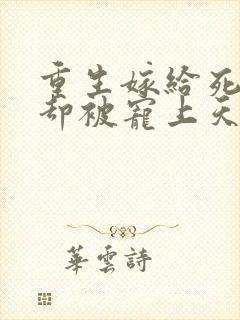 重生嫁给死
却被宠上天
華雲詩